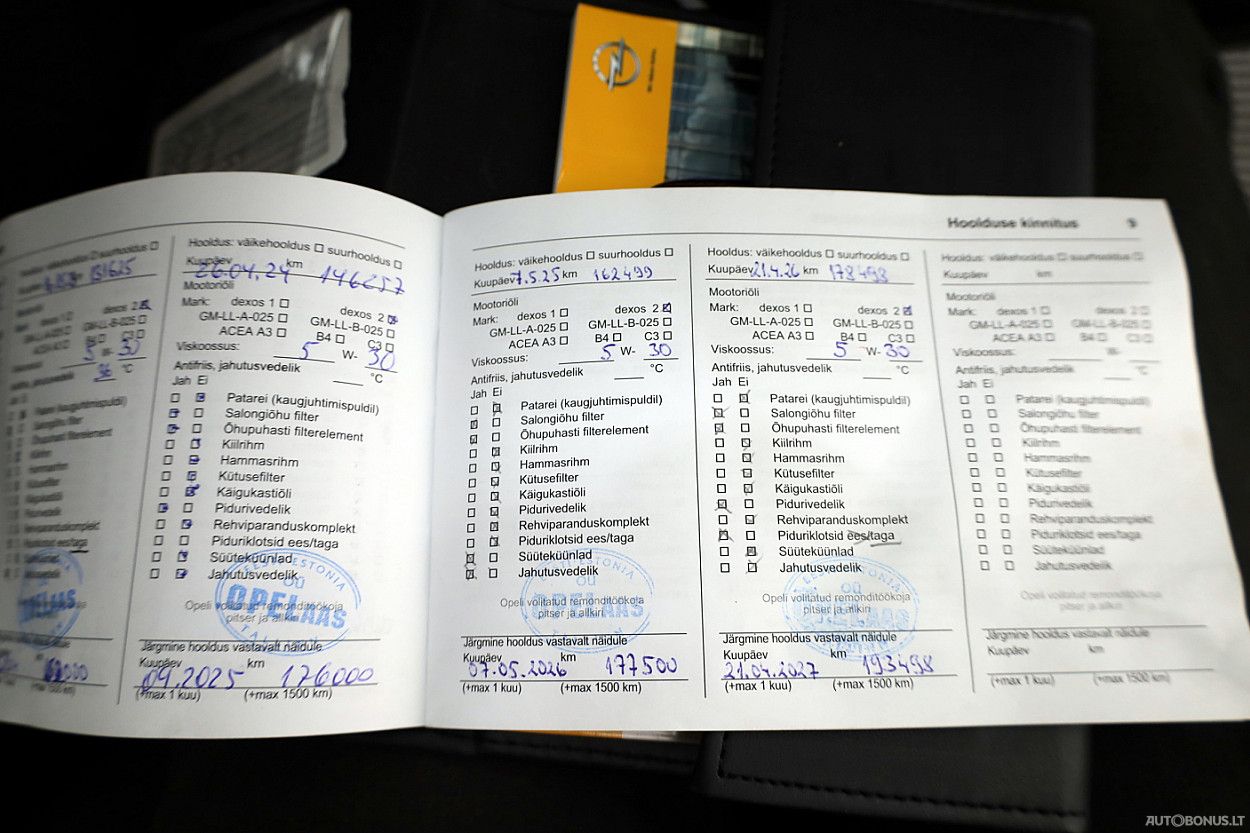 Hoolduse kinnitus 9
131625
dexos 2
5 W- 30
°C
Patarei (kaugjuhtimispuldil)
Salongiõhu filter
Õhupuhasti filterelement
Kiilrihm
Hammasrihm
Kütusefilter
Käigukastiõli
Pidurivedelik
Rehviparanduskomplekt
Piduriklotsid ees/taga
Süüteküünlad
Jahutusvedelik
OPELAAS
km
Hooldus: väikehooldus suurhooldus
Kuupäev 26.04.24 km 146257
Mootoriõli
Mark: dexos 1 dexos 2
GM-LL-A-025 GM-LL-B-025
ACEA A3 B4 C3
Viskoossus: 5 W- 30
Antifriis, jahutusvedelik °C
Jah Ei
Patarei (kaugjuhtimispuldil)
Salongiõhu filter
Õhupuhasti filterelement
Kiilrihm
Hammasrihm
Kütusefilter
Käigukastiõli
Pidurivedelik
Rehviparanduskomplekt
Piduriklotsid ees/taga
Süüteküünlad
Jahutusvedelik
EESTI ESTONIA
OÜ
OPELAAS
Opeli volitatud remonditöökoja
pitser ja allkiri
Järgmine hooldus vastavalt näidule
Kuupäev km
09.2025 176000
(+max 1 kuu) (+max 1500 km)
Hooldus: väikehooldus suurhooldus
Kuupäev 7.5.25 km 162499
Mootoriõli
Mark: dexos 1 dexos 2
GM-LL-A-025 GM-LL-B-025
ACEA A3 B4 C3
Viskoossus: 5 W- 30
Antifriis, jahutusvedelik °C
Jah Ei
Patarei (kaugjuhtimispuldil)
Salongiõhu filter
Õhupuhasti filterelement
Kiilrihm
Hammasrihm
Kütusefilter
Käigukastiõli
Pidurivedelik
Rehviparanduskomplekt
Piduriklotsid ees/taga
Süüteküünlad
Jahutusvedelik
ESTONIA
OÜ
OPELAAS
Opeli volitatud remonditöökoja
pitser ja allkiri
Järgmine hooldus vastavalt näidule
Kuupäev km
07.05.2026 177500
(+max 1 kuu) (+max 1500 km)
Hooldus: väikehooldus suurhooldus
Kuupäev 21.4.26 km 178498
Mootoriõli
Mark: dexos 1 dexos 2
GM-LL-A-025 GM-LL-B-025
ACEA A3 B4 C3
Viskoossus: 5 W- 30
Antifriis, jahutusvedelik °C
Jah Ei
Patarei (kaugjuhtimispuldil)
Salongiõhu filter
Õhupuhasti filterelement
Kiilrihm
Hammasrihm
Kütusefilter
Käigukastiõli
Pidurivedelik
Rehviparanduskomplekt
Piduriklotsid ees/taga
Süüteküünlad
Jahutusvedelik
ESTONIA
OÜ
OPELAAS
Opeli volitatud remonditöökoja
pitser ja allkiri
Järgmine hooldus vastavalt näidule
Kuupäev km
21.04.2027 193498
(+max 1 kuu) (+max 1500 km)
Hooldus: väikehooldus suurhooldus
Kuupäev km
Mootoriõli
Mark: dexos 1 dexos 2
GM-LL-A-025 GM-LL-B-025
ACEA A3 B4 C3
Viskoossus: W-
Antifriis, jahutusvedelik °C
Jah Ei
Patarei (kaugjuhtimispuldil)
Salongiõhu filter
Õhupuhasti filterelement
Kiilrihm
Hammasrihm
Kütusefilter
Käigukastiõli
Pidurivedelik
Rehviparanduskomplekt
Piduriklotsid ees/taga
Süüteküünlad
Jahutusvedelik
Opeli volitatud remonditöökoja
pitser ja allkiri
Järgmine hooldus vastavalt näidule
Kuupäev km
(+max 1 kuu) (+max 1500 km)
AUTOBONUS.LT